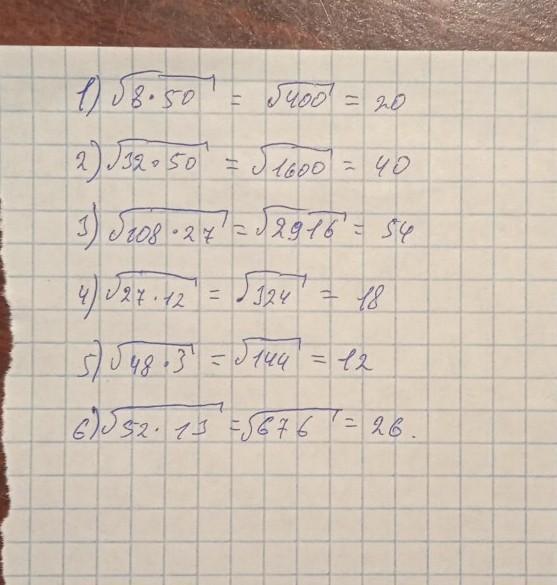 1) √8·50 = √400 = 20
2) √32·50 = √1600 = 40
3) √108·27 = √2916 = 54
4) √27·12 = √324 = 18
5) √48·3 = √144 = 12
6) √52·13 = √676 = 26.